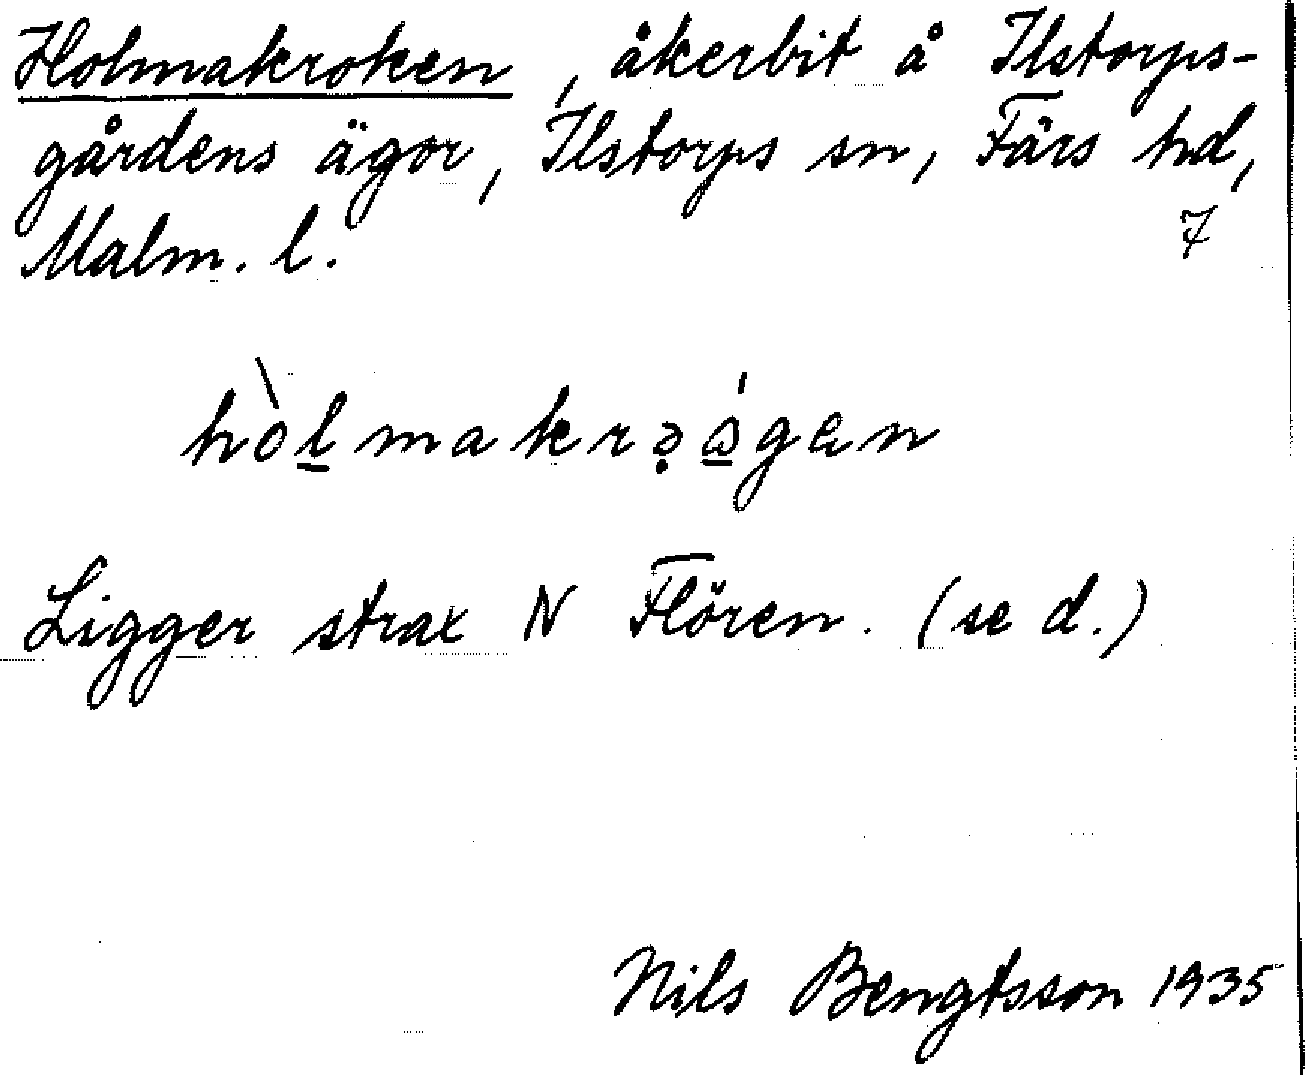 Holmakroken, åkerbit å Ilstorps-
gårdens ägor, Ilstorps sn, Färs hd,
Malm. l. 7
hòl̲makrə̣ɷ̲́gen
Ligger strax N Flören. (se d.)
Nils Bengtsson 1935